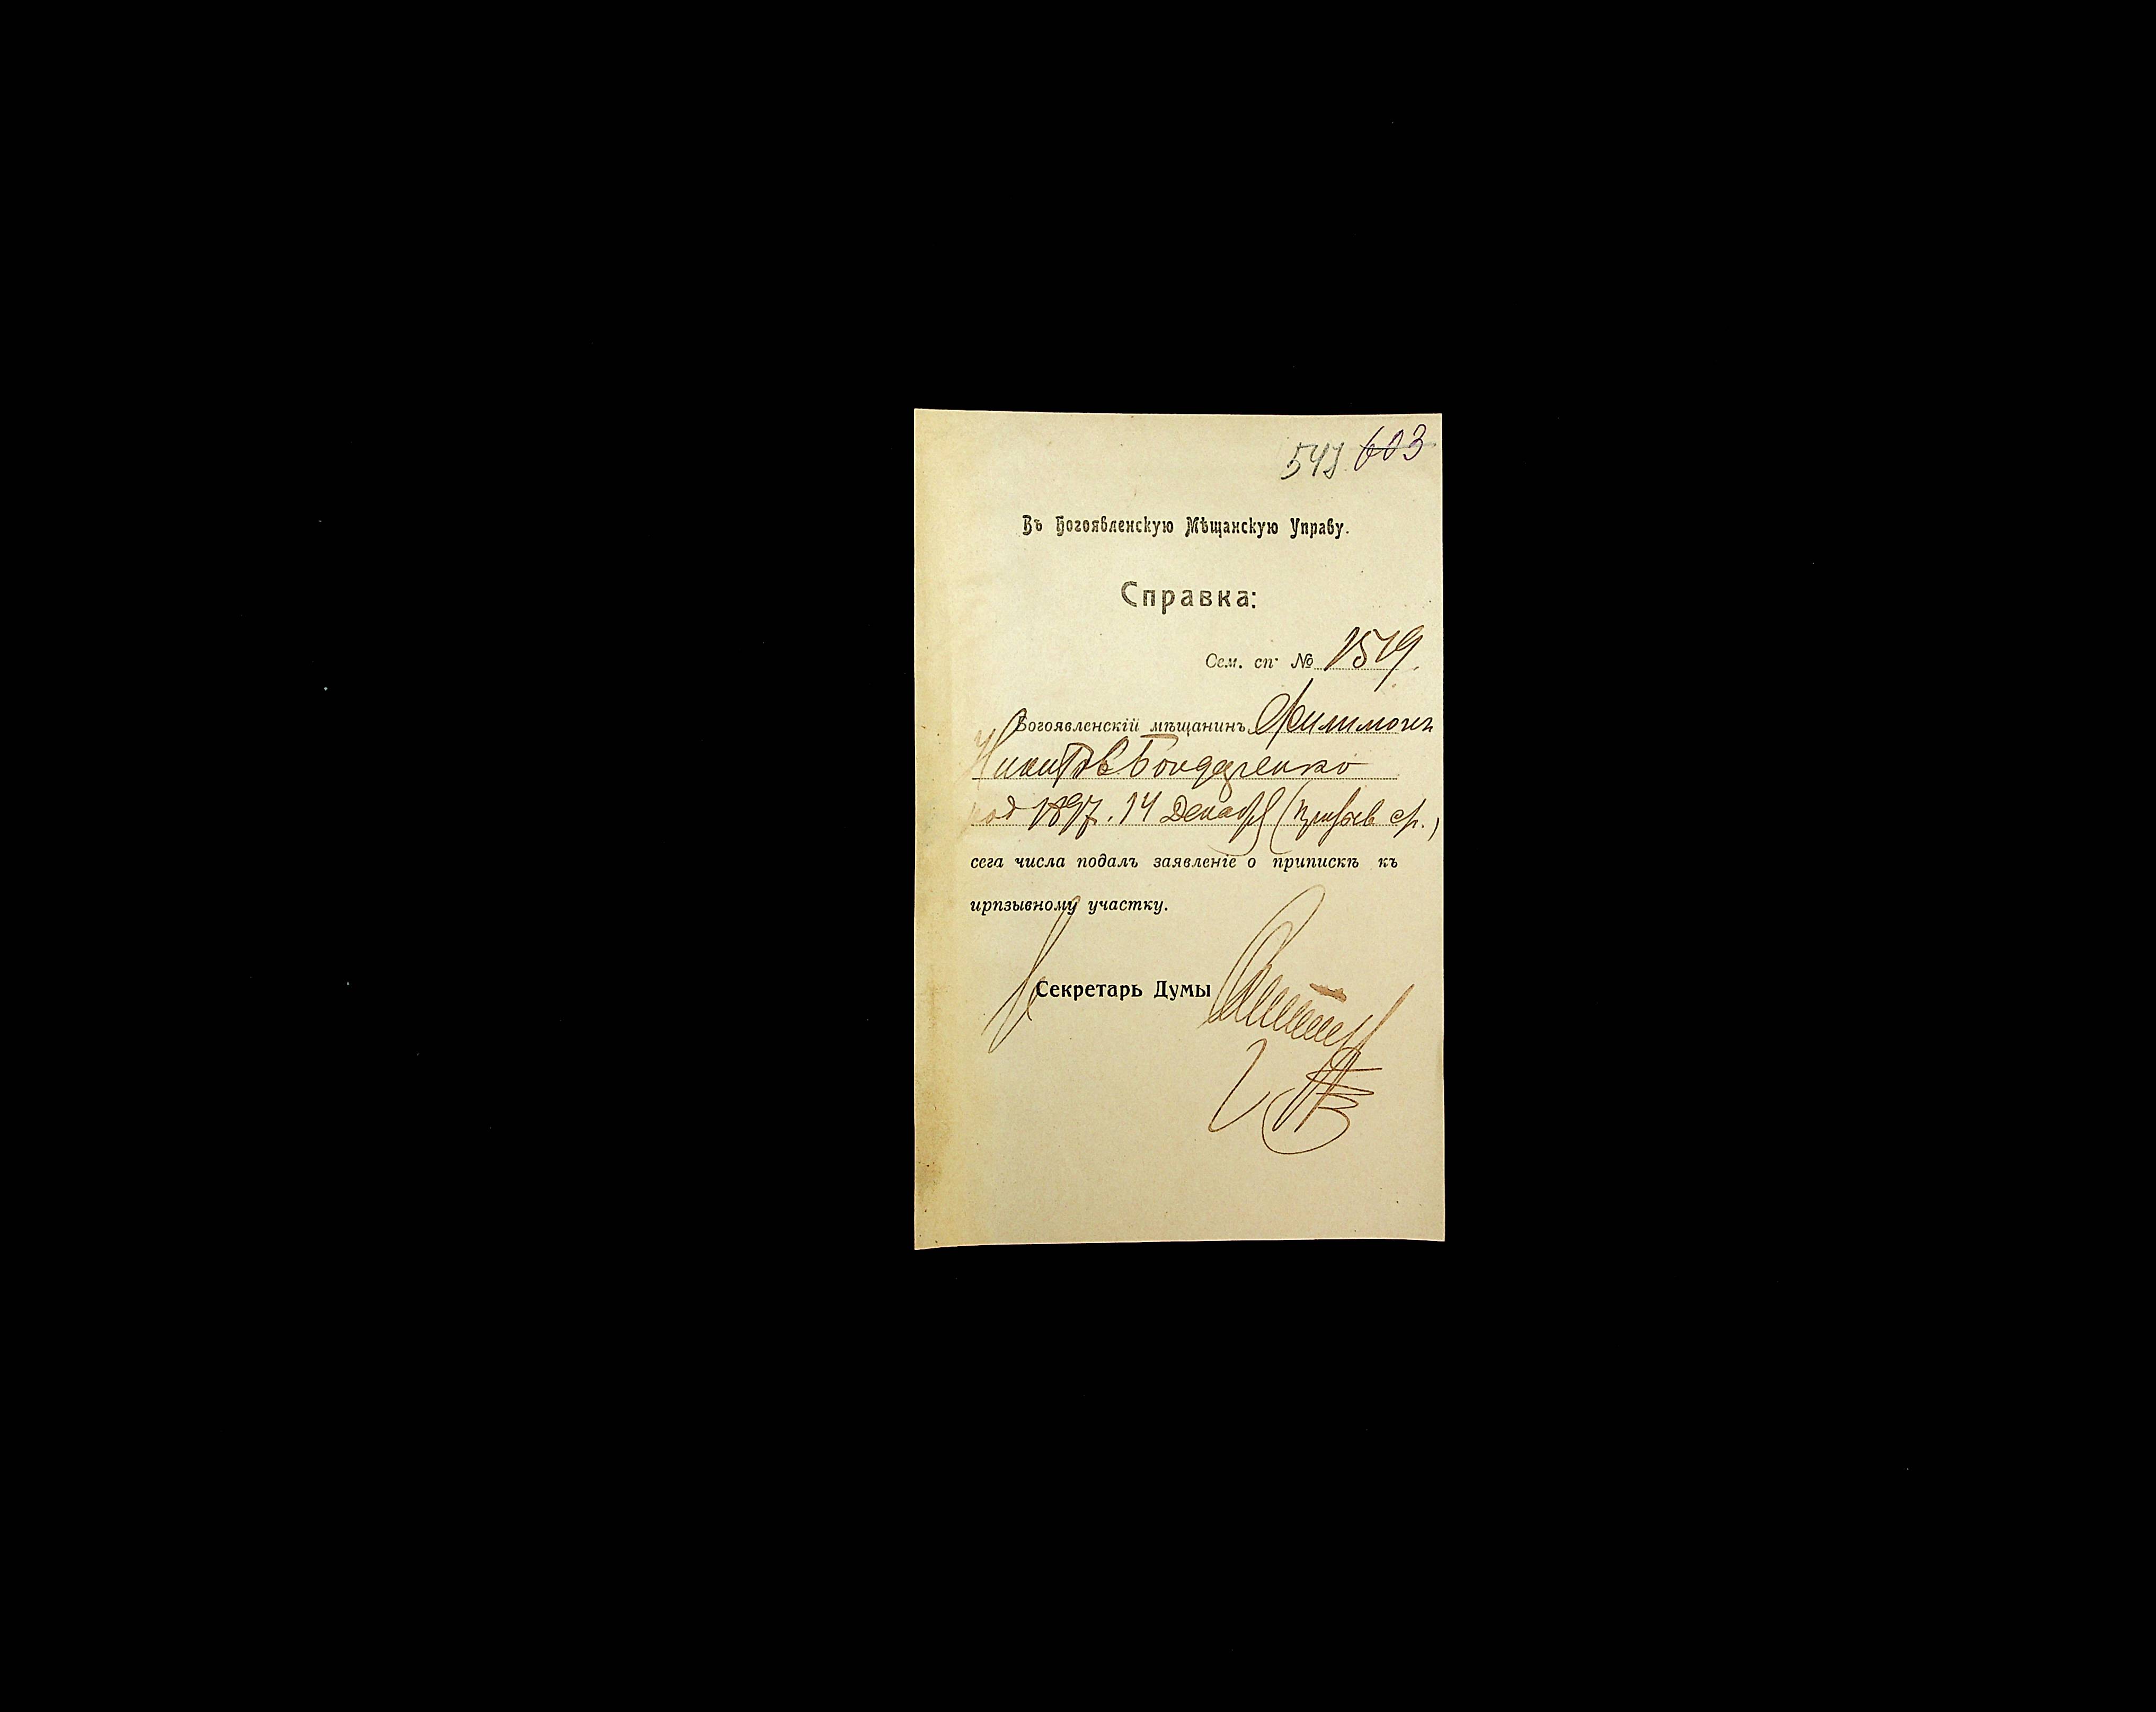 603
Въ Богоявленскую Мѣщанскую Управу.
Справка:
Сем. сп. № 1519.
Богоявленскій мѣщанинъ Филимонъ
Никитов Бондаренко
род 1897. 14 Декабр
сега числа подалъ заявленіе о припискѣ къ
ирпзывному участку.
Секретарь Думы